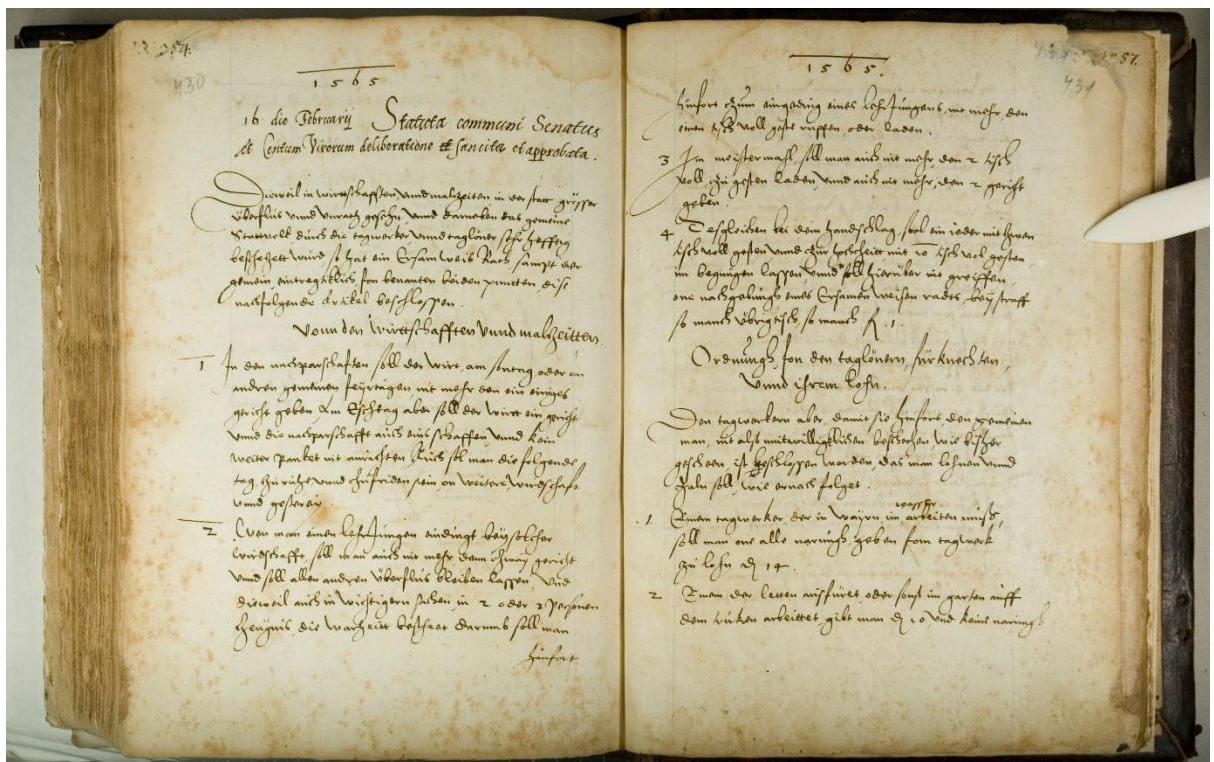 354.
430
1565
16 die Februarij Statuta communi Senatus
et Centum Virorum deliberatione et sancita et approbata.
Dieweil in wirttschafften vnnd malzeiten in der statt grosser
vberflus vnnd vnrath geschehn vnnd darneben das gemeine
Stattvolk durch die tagwerker vnnd taglöner sehr hefftig
beschetzett wird so hat ein Ersam weis Rath sampt der
gemein, eintregtiklich fon benanten beiden puncten, dise
nachfolgende Artikel beschlossen.
Vonn den Wirttschafften vnnd malzeitten.
1 In den nachparschafften soll der wirt, am sontag oder an
andren gemeinen feyrtägen nit mehr den ein einiges
gericht geben Am Eschtag aber soll der wirtt ein gericht
vnnd die nachparschafft auch eins schaffen vnnd kein
weiter panket nit anrichten Auch sol man die folgende
tag zu rühe vnnd zufriden sein, on weitere wirdschaft
vnnd gesterey
2 Wen man einen lehrJungen eindingt bey solcher
wirdschafft, soll man auch nit mehr denn zway gericht
vnnd soll allen andren vberflus bleiben lassen, Vnd
dieweil auch in wichtigern sachen, in 2 oder 3 personen
zeugnis, die warheitt bestehet darumb soll man
hinfort
57.
431
1565.
hinfort zum eingeding eines lehrJungens, nit mehr, den
einen tisch voll geste ruffen oder laden.
3 Im meistermahl, soll man auch nit mehr, den 2 tisch
voll, zu gesten laden, vnnd auch nit mehr, den 2 gericht
geben.
4 Desgleichen bei dem handschlag, sol ein ieder mit zween
tisch voll gesten vnnd zur hochzeitt mit 10 tisch vol gesten,
im begnügen lassen, vnnd soll hierüber nit greiffen,
one nachgebungh eines Ersamen weisen radts, bey straff
so manch vbrig tisch, so manch fl. 1.
Ordnungh, fon den taglönern, fürknechten,
vnnd ihrem lohn.
Den tagwerkern aber, damit sie hinfort den gemeinen
man, nit also mutwilligklichen beschetzen wie bisher
gescheen, ist beschlossen worden, das man lohnen vnnd
zaln soll, wie ernach folget.
1 Einem tagwerker, der in Wayrn, im wasser arbeiten müss,
soll man one alle narungh, geben fom tagwerk
zu lohn d 14.
2 Einem der letten ausfüret, oder sonst im garten auff
dem rücken arbeittet, gibt man d 10, vnd keine narungh